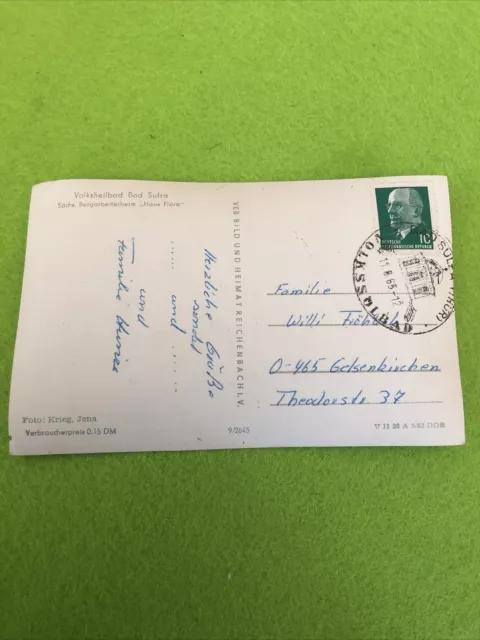 Volksheilbad Bad Sulza
Sächs. Bergarbeiterheim „Haus Flora“
Herzliche Grüße
sendet
...... und ......
und
Familie
Foto: Krieg, Jena
Verbraucherpreis 0.15 DM
VEB BILD UND HEIMAT REICHENBACH I. V.
9/2645
10
DEUTSCHE
DEMOKRATISCHE REPUBLIK
VOLKSSOLBAD
SULZA (THÜR)
11.8.65-12
Familie
Willi
O-465 Gelsenkirchen
Theodorstr 37
V 11 28 A 542 DDR